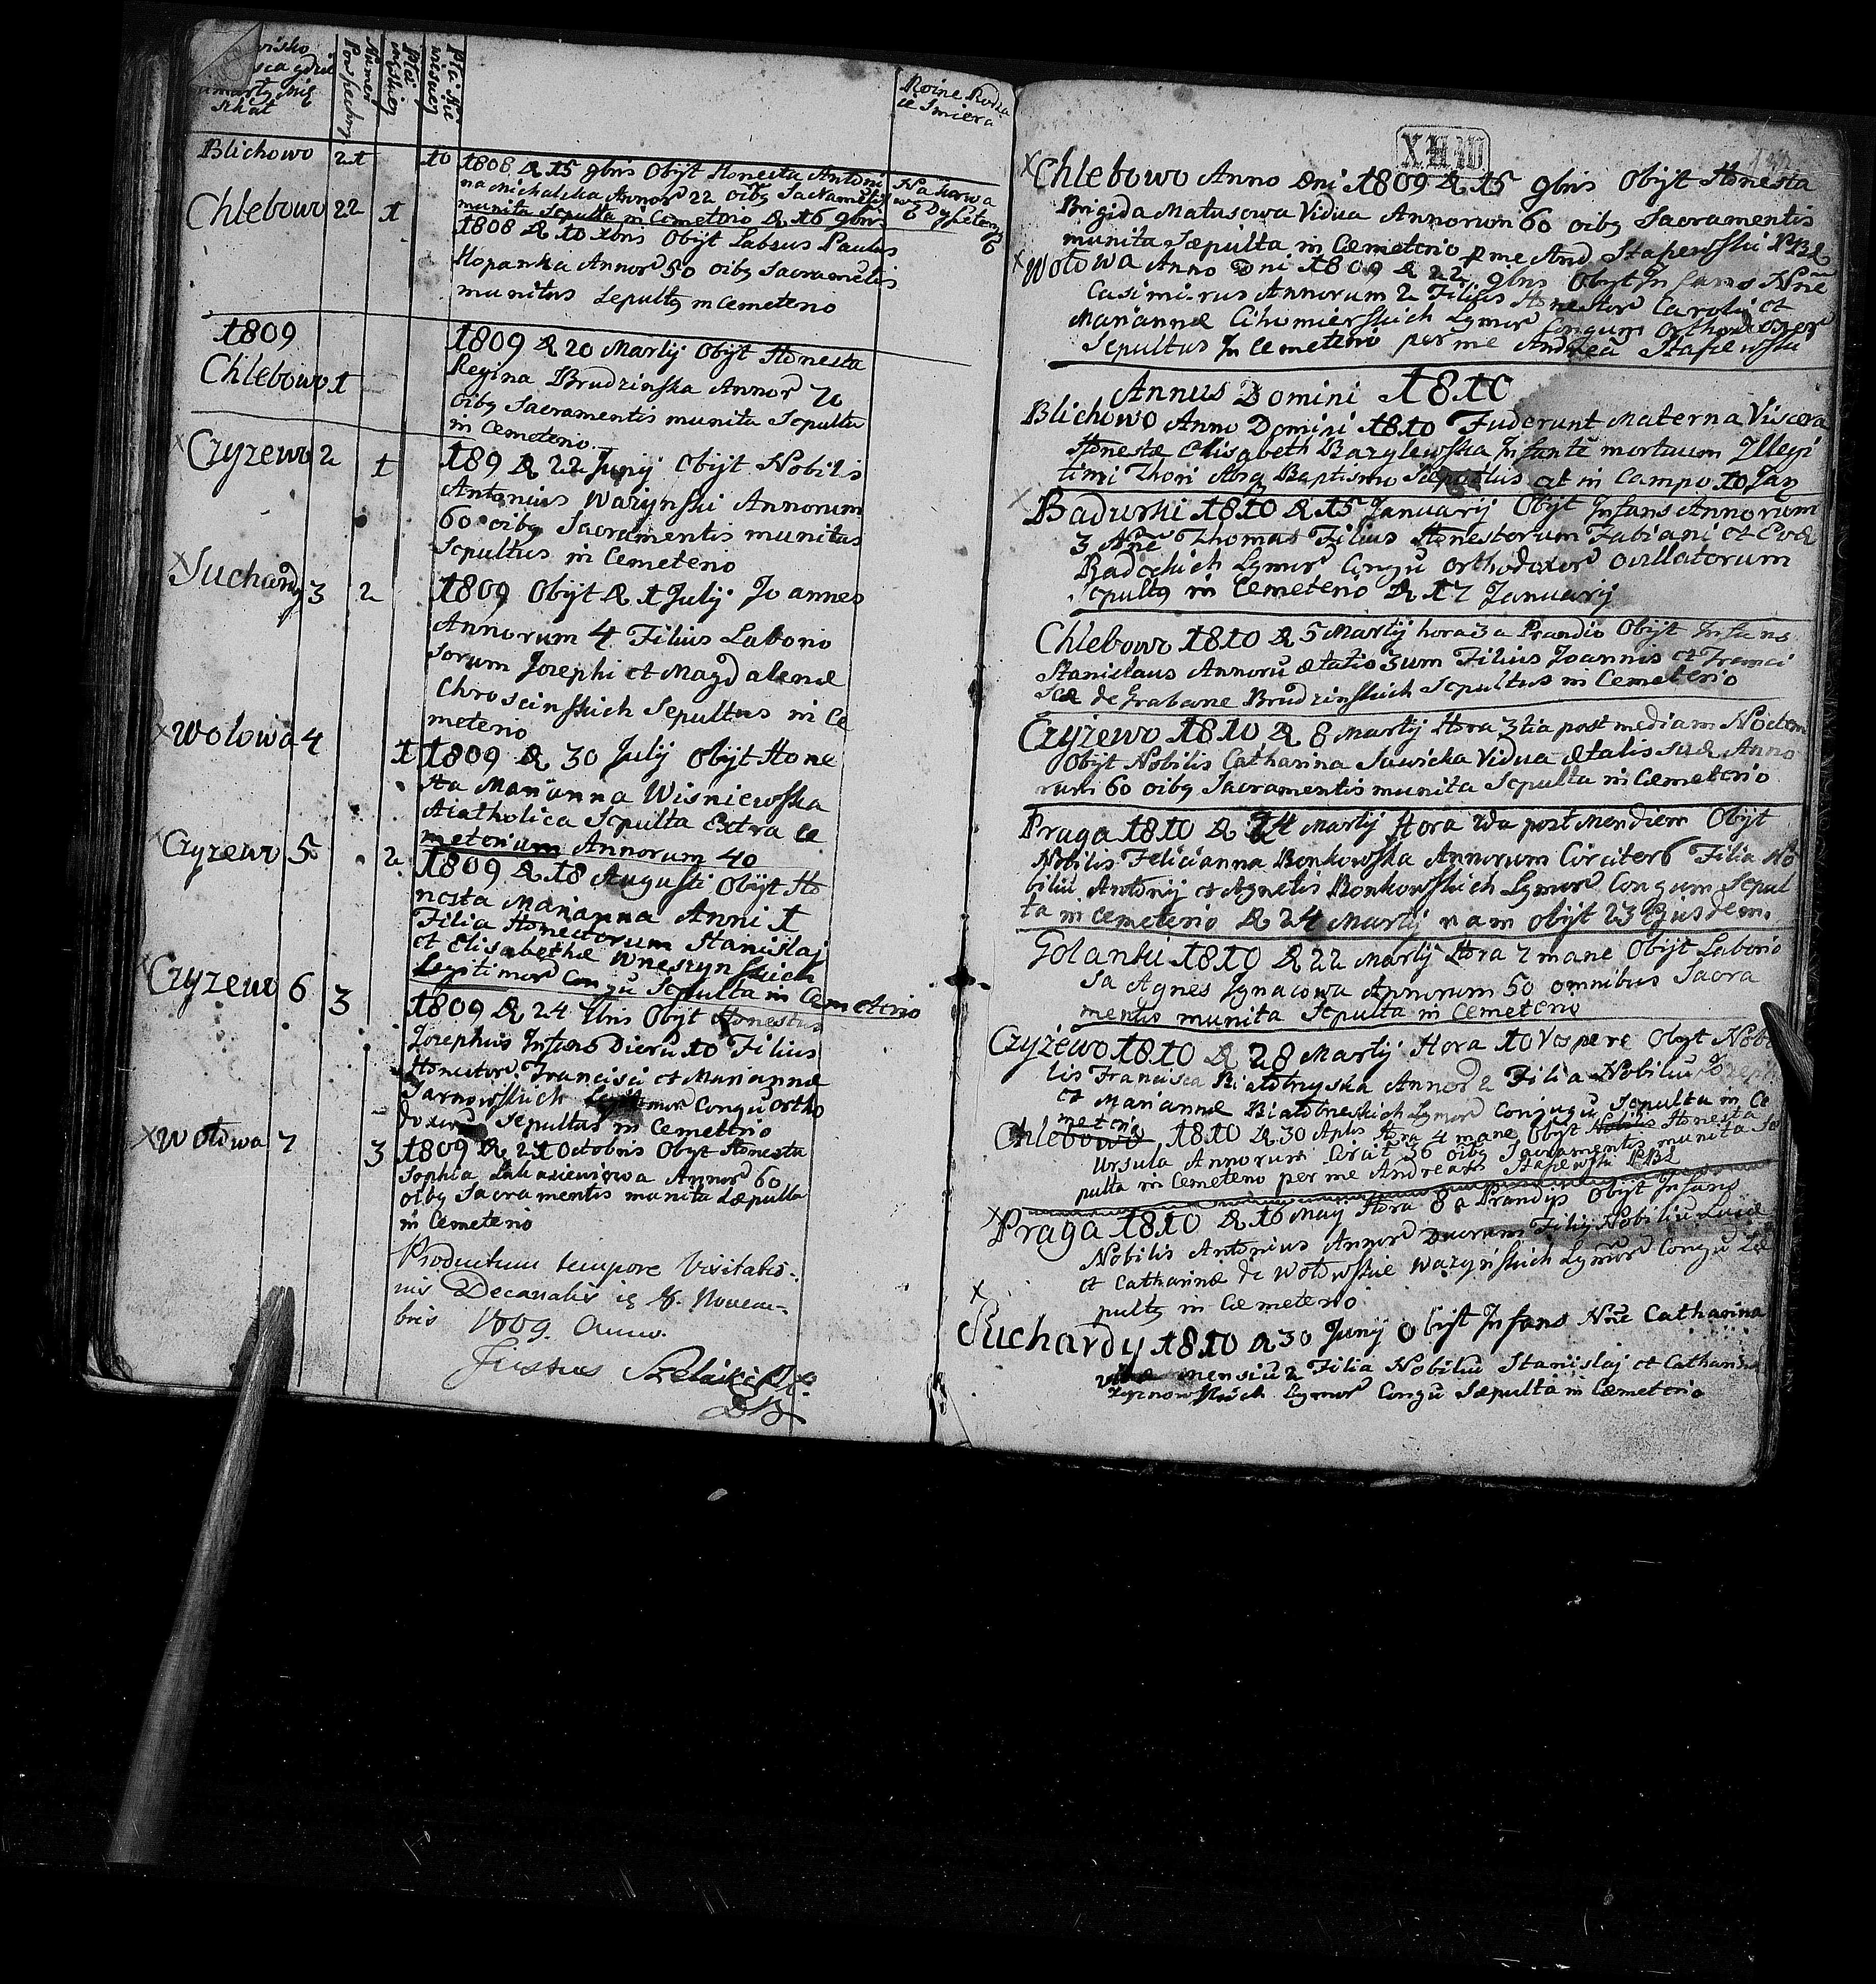 Numer
Powszechny
Płci
męskiey
Płci Że
wskiey
umarły Mię
szkał
Roźne Rodza
ie Smierci
Blichowo 21 10
1808 d 15 9bris Obijt Honesta Antoni
na Michalska Annor 22 oibq Sacrametis
munita Sepulta in Cemeterio d 16 9bris
Chlebowo 22 1
1808 d 10 xbris Obijt Labsus Paulus
Kopanka Annor 50 oibq Sacrametis
munitus Sepultq in Cemeterio
1809
Chlebowo 1
1809 d 20 Martij Obijt Honesta
Regina Brudzinska Annor 70
oibq Sacramentis munita Sepulta
in Cemeterio
Czyzewo 2 1
189 d 22 Junij Obijt Nobilis
Antonius Wazynski Annorum
60 oibq Sacramentis munitus
Sepultus in Cemeterio
Suchardy 3 2
1809 Obijt d 1 Julij Joannes
Annorum 4 Filius Laborio
sorum Josephi et Magdalenæ
Chroscinskich Sepultus in Ce
meterio
Wolowa 4 1
1809 d 30 Julij Obijt Hone
sta Marianna Wisniewska
Aiatholica Sepulta Extra Ce
meterium Annorum 40
Czyzewo 5 2
1809 d 18 Augusti Obijt Ho
nesta Marianna Anni 1
Filia Honestorum Stanislaj
et Elisabethæ Wneszynskich
Legitimor Conju Sepulta in Cemeterio
Czyzewo 6 3
1809 d 24 7bris Obijt Honestus
Josephus Infans Dieru 10 Filius
Honestor Francisci et Mariannæ
Sarnowskich Conju Ortho
doxor Sepultus in Cemeterio
Wołowa 7 3
1809 d 21 Octobris Obyt Honesta
Sophia Łukasiewiczowa Annor 60
oibq Sacramentis munita Sæpulta
in Cemeterio
Productum tempore Visitatio-
nis Decanalis
bris 1809. Anno.
Justus
XIIIU
Chlebowo Anno Dni 1809 d 15 9bris Obijt Honesta
Brigida Matusowa Vidua Annorum 60 oibq Sacramentis
munita Sæpulta in Cæmeterio p me And Stapewski PBL
Wołowa Anno Dni 1809 d 22 9bris Obyt Infans Nñe
Casimirus Annorum 2 Filius Honestor Caroli et
Mariannæ Cihomierskich Lgmor Congum Orthodoxor
Sepultus In Cemeterio per me Andrea Stapewski
Annus Domini 1810
Blichowo Anno Domini 1810 Fuderunt Materna Viscera
Honestæ Elisabeth Bazylewska Infante mortuum Illegi
timi Thori Absq Baptismo Sæpultus at in Campo 10 Jan
Badurki 1810 d 15 Januarij Obijt Infans Annorum
3 Nñe Thomas Filius Honestorum Fabiani et Evæ
Radockich Lgmor Congu Orthodoxor ovillatorum
Sepultq in Cemeterio d 17 Januarij
Chlebowo 1810 d 5 Martij hora 3 a Prandio Obijt Infans
Stanislaus Annorũ ætatis 3um Filius Joannis et Franci
scæ de Grabane Brudzinskich Sepultus in Cemeterio
Czyżewo 1810 d 8 Martij Hora 3tia post mediam Noctem
Obijt Nobilis Catharina Sawicka Vidua ætatis suæ Anno
rum 60 oibq Sacramentis munita Sepulta in Cæmeterio
Praga 1810 d 24 Martij Hora 2da post Meridiem Obijt
Nobilis Felicianna Bonkowska Annorum Circiter 6 Filia No
biliũ Antonij et Agnetis Bonkowskich Lgmor Congum Sepul
ta in Cemeterio d 24 Martij nam obijt 23 Ejusdem.
Golanki 1810 d 22 Martij Hora 7 mane Obijt Laborio
sa Agnes Ignacowa Annorum 50 omnibus Sacra
mentis munita Sepulta in Cemeterio
Czyżewo 1810 d 28 Martij Hora 10 Vespere Obyt Nobi
lis Francisca Białobrzyska Annor 2 Filia Nobiliũ Joseph
et Mariannæ Białobrzeskich Lgmor Conjugũ Sepulta in Ce
meterio
Chlebowo, 1810 d 30 Aplis Hora 4 mane Obyt Nobilis Honesta
Ursula Annorum Cirat 36 oibq Sacramentis munita Sæ
pulta in Cemeterio per me Andream Stapewski PBL
Praga 1810 d 16 Maij Hora 8 a Prandijs Obijt Infans
Nobilis Antonius Annor Duorum Filiq Nobiliũ Lucæ
et Catharinæ de Wołowskie Wazynskich Lgmor Congũ Sæ
pultq in Cæmeterio
Suchardy 1810 d 30 Junij Obijt Infans Nñe Catharina
mensiũ 2 Filia Nobiliũ Stanislaj et Catharinæ
Lgmor Congũ Sæpulta in Cæmeterio